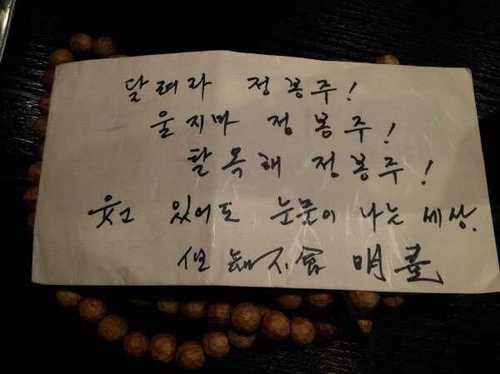 달려라 정봉주!
울지마 정봉주!
탈옥해 정봉주!
웃고 있어도 눈물이 나는 세상.
但知不會 明盡